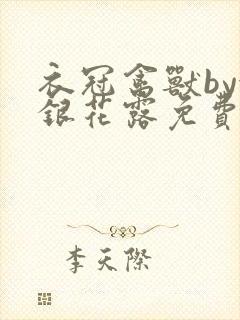 衣冠禽獸by
銀花露免費
李天際